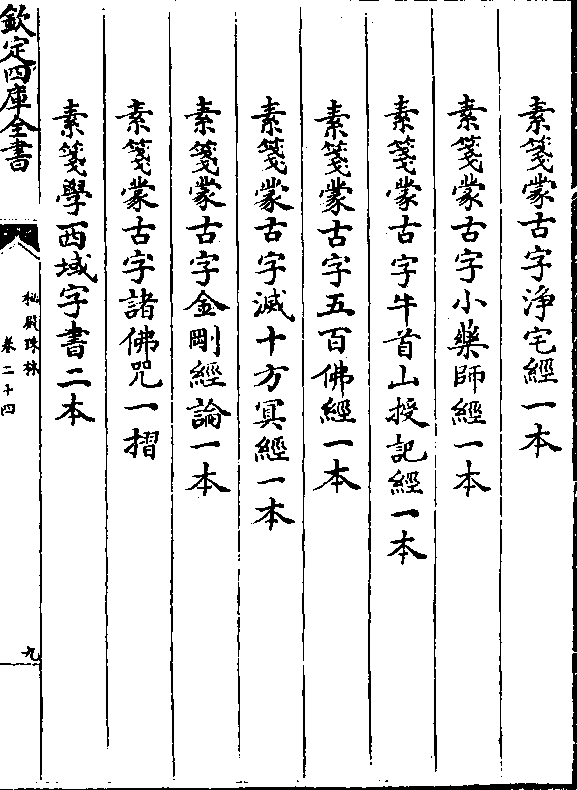 素箋蒙古字淨宅經一本
素箋蒙古字小藥師經一本
素箋蒙古字牛首山授記經一本
素箋蒙古字五百佛經一本
素箋蒙古字滅十方冥經一本
素箋蒙古字金剛經論一本
素箋蒙古字諸佛咒一摺
素箋學西域字書二本
欽定四庫全書
秘殿珠林
卷二十四
九